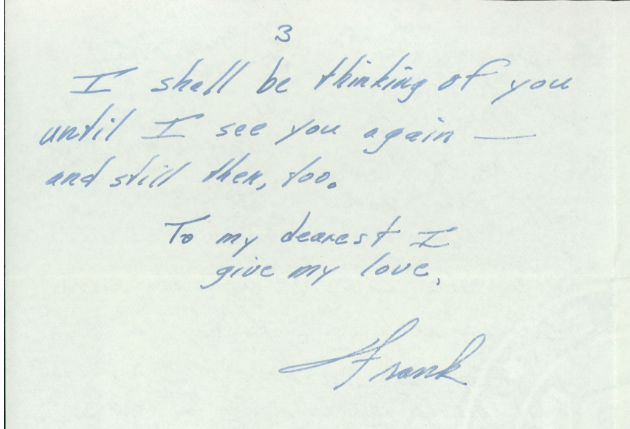 3
I shall be thinking of you
until I see you again —
and still then, too.
To my dearest I
give my love,
Frank